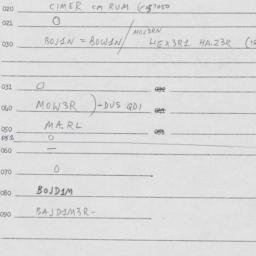 020 CIMER CM RUM
021 O
030 BOJ1N = BOW1N / MOJ3RN HEX3R1 HAZ3R
031 O
040 MOW3R ) - DUS QDI
050 MA.RL
052 O
060 —
070 O
080 BOJD1M
090 BAJD1M3R-